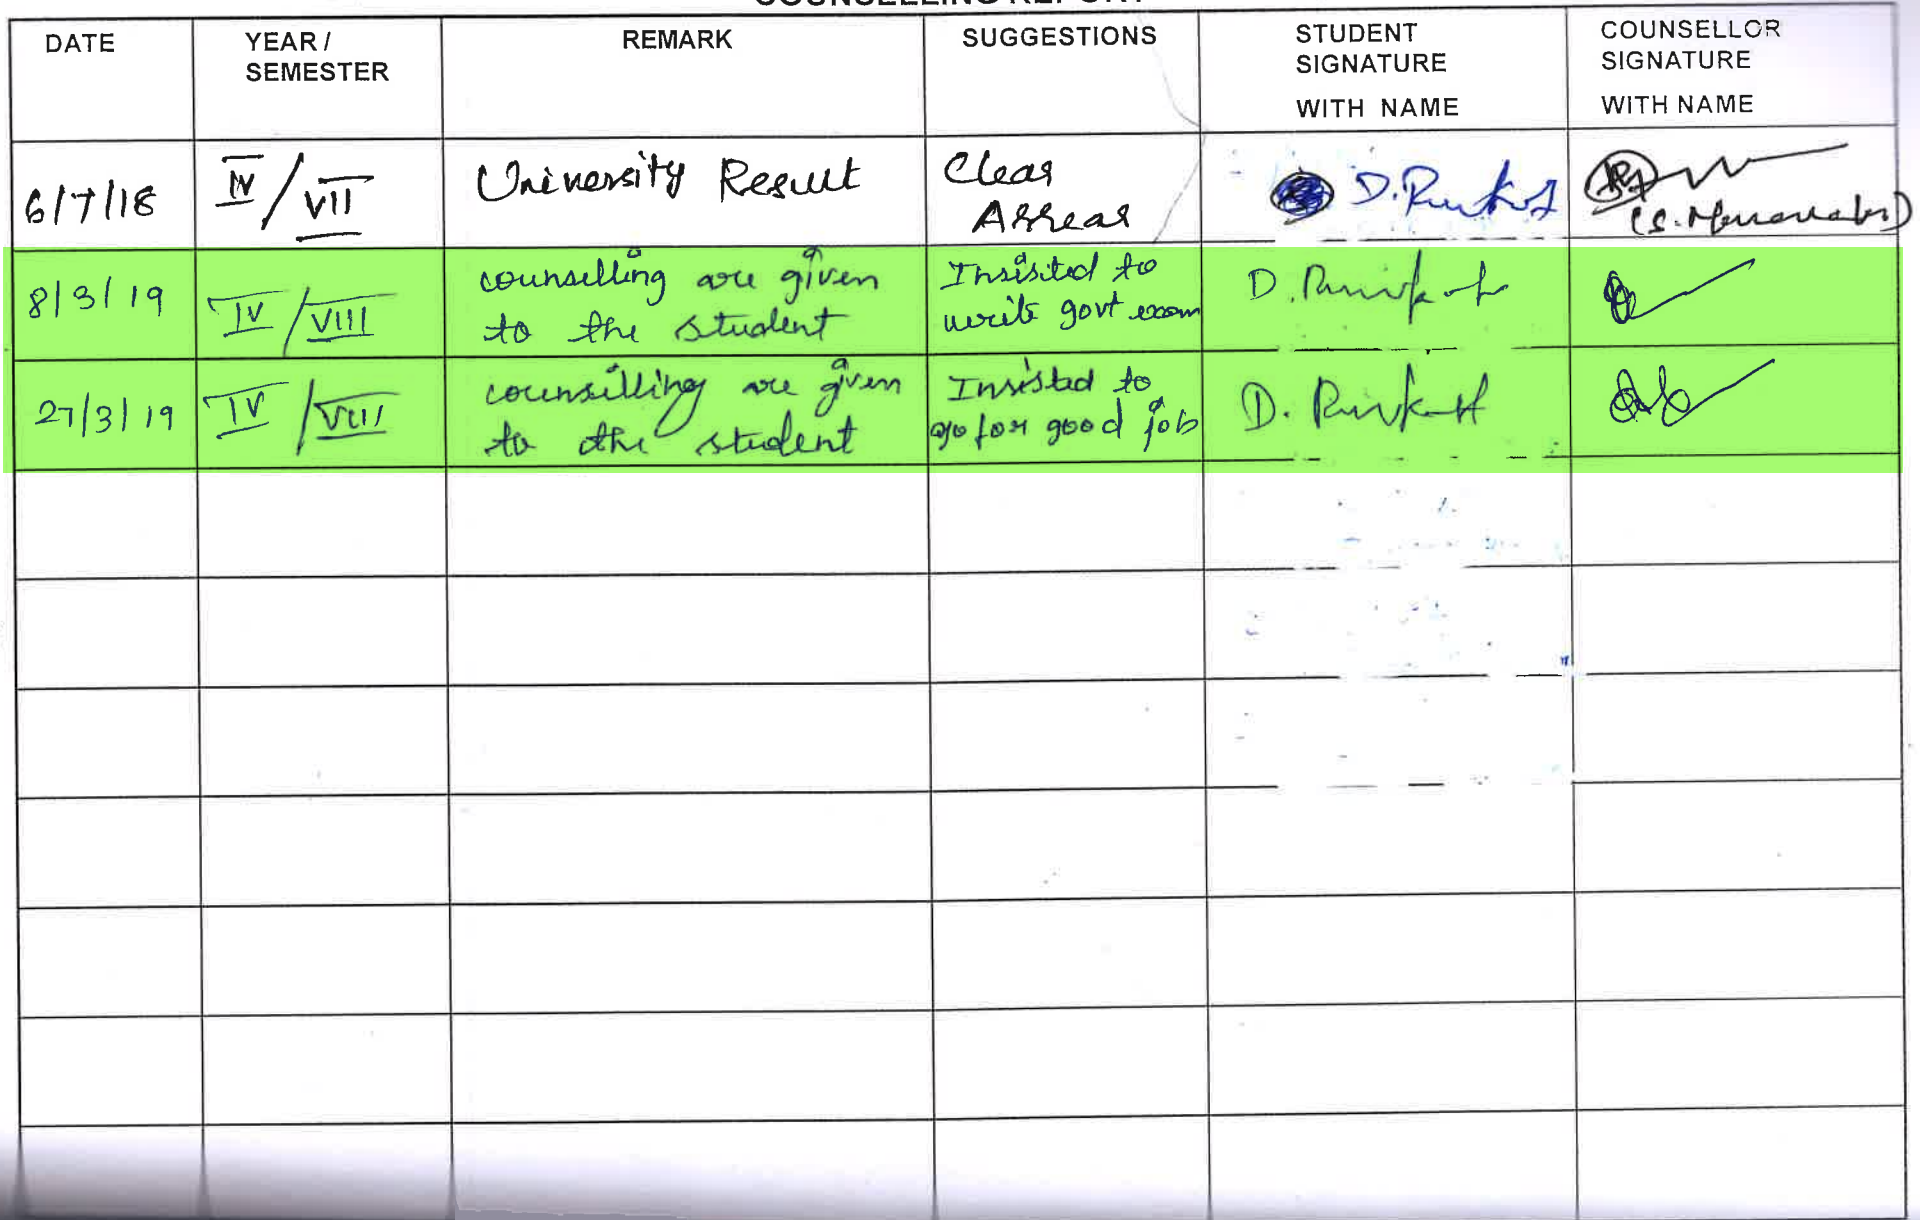 COUNSELLING REPORT
DATE YEAR / SEMESTER REMARK SUGGESTIONS STUDENT SIGNATURE WITH NAME COUNSELLOR SIGNATURE WITH NAME
6/7/18 IV/VII University Result Clear Arrear
8/3/19 IV/VIII counselling are given to the student Insisited to write govt exam D.
27/3/19 IV/VIII counsilling are given to the student Insisted to go for good job D.